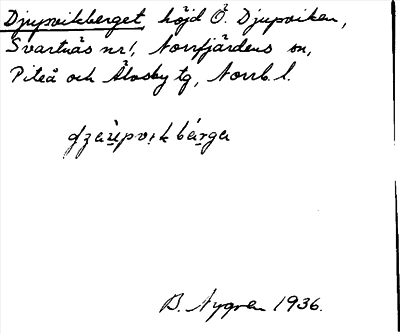 Djupvikberget, höjd Ö. Djupviken,
Svartnäs nr 1, Norrfjärdens sn,
Piteå och Älvsby tg, Norrb. l.
B. Nygren 1936.